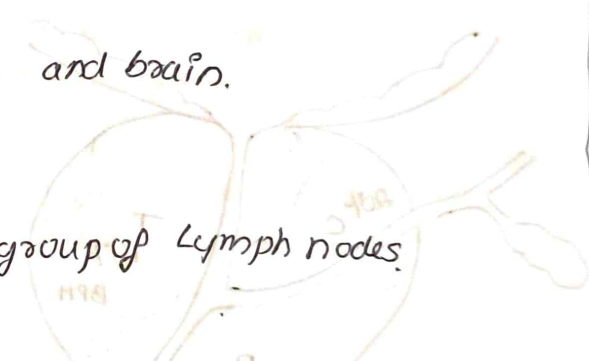 and brain.
group of Lymph nodes.